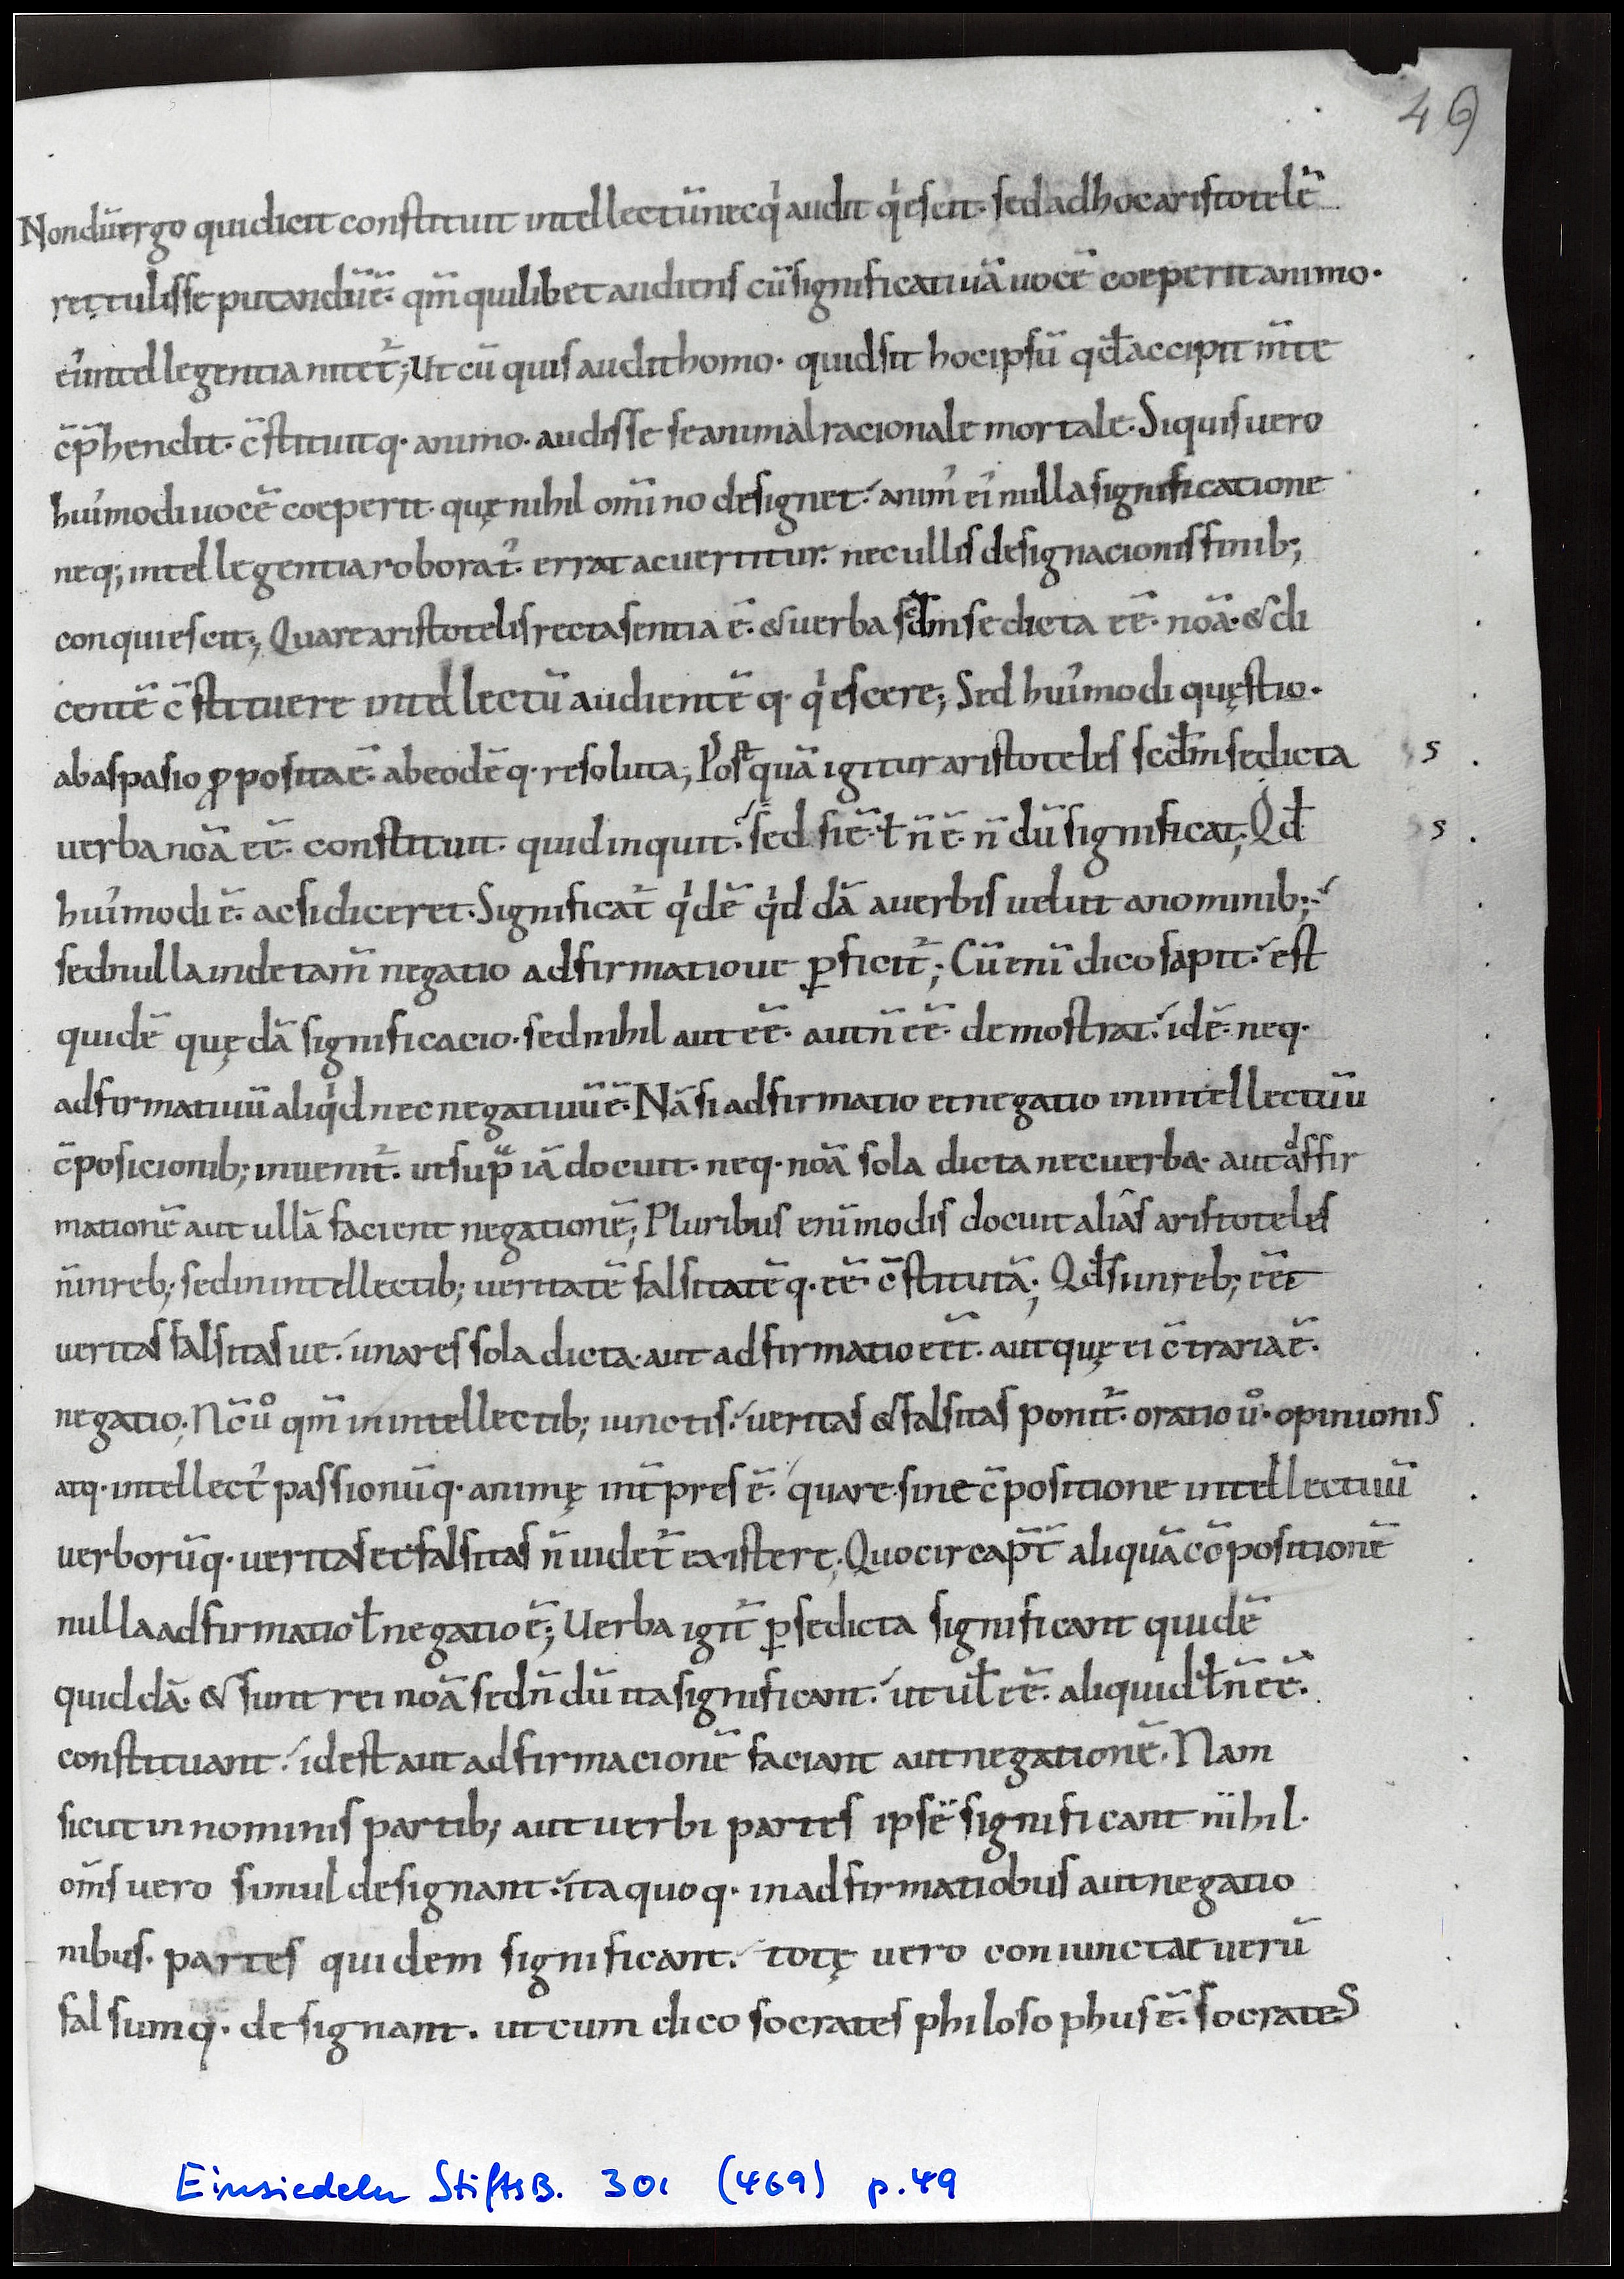 49
Nondū ergo qui dicit constituit intellectū nec qͥ audit qͥescit· sed ad hoc aristotelē
rettulisse putandū ē· qm̄ quilibet auditis cū significatiuā uocē coeperit animo·
ei᾽ intellegentia nitet᷑; Ut cū quis audit homo· quid sit hoc ipsū qđ accipit m̄te
c̄p̄hendit· c̄stituitq· animo· audisse se animal racionale mortale· Si quis uero
hui᾽modi uocē coeperit· quę nihil om̄ino designet· anim᾽ ei᾽ nulla significatione
neq; intellegentia roborat᷑· errat ac uertitur· nec ullis designacionis finib;
conquiescit; Quare aristotelis recta sentia ē· & uerba scđm se dicta eē· noā· & di
centē c̄stituere intellectū audientēq· qͥescere; Sed hui᾽modi quęstio·
ab aspasio ꝓposita ē· ab eodēq· resoluta; Postquā igitur aristoteles scđm se dicta
s
uerba noā eē· constituit· quid inquit· sed si ē· ł n̄ ē· n̄ dū significat; Qđ
s
hui᾽modi ē· ac si diceret· Significat᷑ qͥdē qͥddā a uerbis uelut a nominib;
sed nulla inde tam̄ negatio adfirmatioue ꝑficit᷑; Cū enī dico sapit· est
quidē quędā significacio· sed nihil aut eē· aut n̄ eē· demostrat· idē· neq·
adfirmatiuū aliqͥd nec negatiuū ē· Nā si adfirmatio et negatio in intellectuū
c̄posicionib; inuenit᷑· ut supͣ iā docuit· neq· noā sola dicta nec uerba· aut adfir
mationē aut ullā facient negationē; Pluribus enī modis docuit aliâs aristoteles
n̄ in reb; sed in intellectib; ueritatē falsitatēq· eē· c̄stitutā; Qđ si in reb; eēt
ueritas falsitasue· una res sola dicta· aut adfirmatio eēt· aut quę ei c̄traria ē·
negatio; Nc̄ uͦ qm̄ in intellectib; iunctis· ueritas & falsitas ponit᷑· oratio uͦ· opinionis
atq· intellect᾽ passionūq· animę int̄pres ē· quare sine c̄positione intellectuū
uerborūq· ueritas et falsitas n̄ uidet᷑ existere; Quocirca p̄t̄ aliquā cōpositionē
nulla adfirmatio ł negatio ē; Uerba igit᷑ ꝑ se dicta significant quidē
quiddā· & sunt rei noā sed n̄dū ita significant· ut uł eē· aliquid ł n̄ eē·
constituant· id est aut adfirmacionē faciant aut negationē· Nam
sicut in nominis partib; aut uerbi partes ipsē significant nihil·
om̄s uero simul designant· ita quoq· in adfirmatiobus aut negatio
nibus· partes quidem significant· totę uero coniunctae uerū
falsumq· designant· ut cum dico socrates philosophus ē· socrates
Einsiedeln StiftsB. 301 (469) p. 49